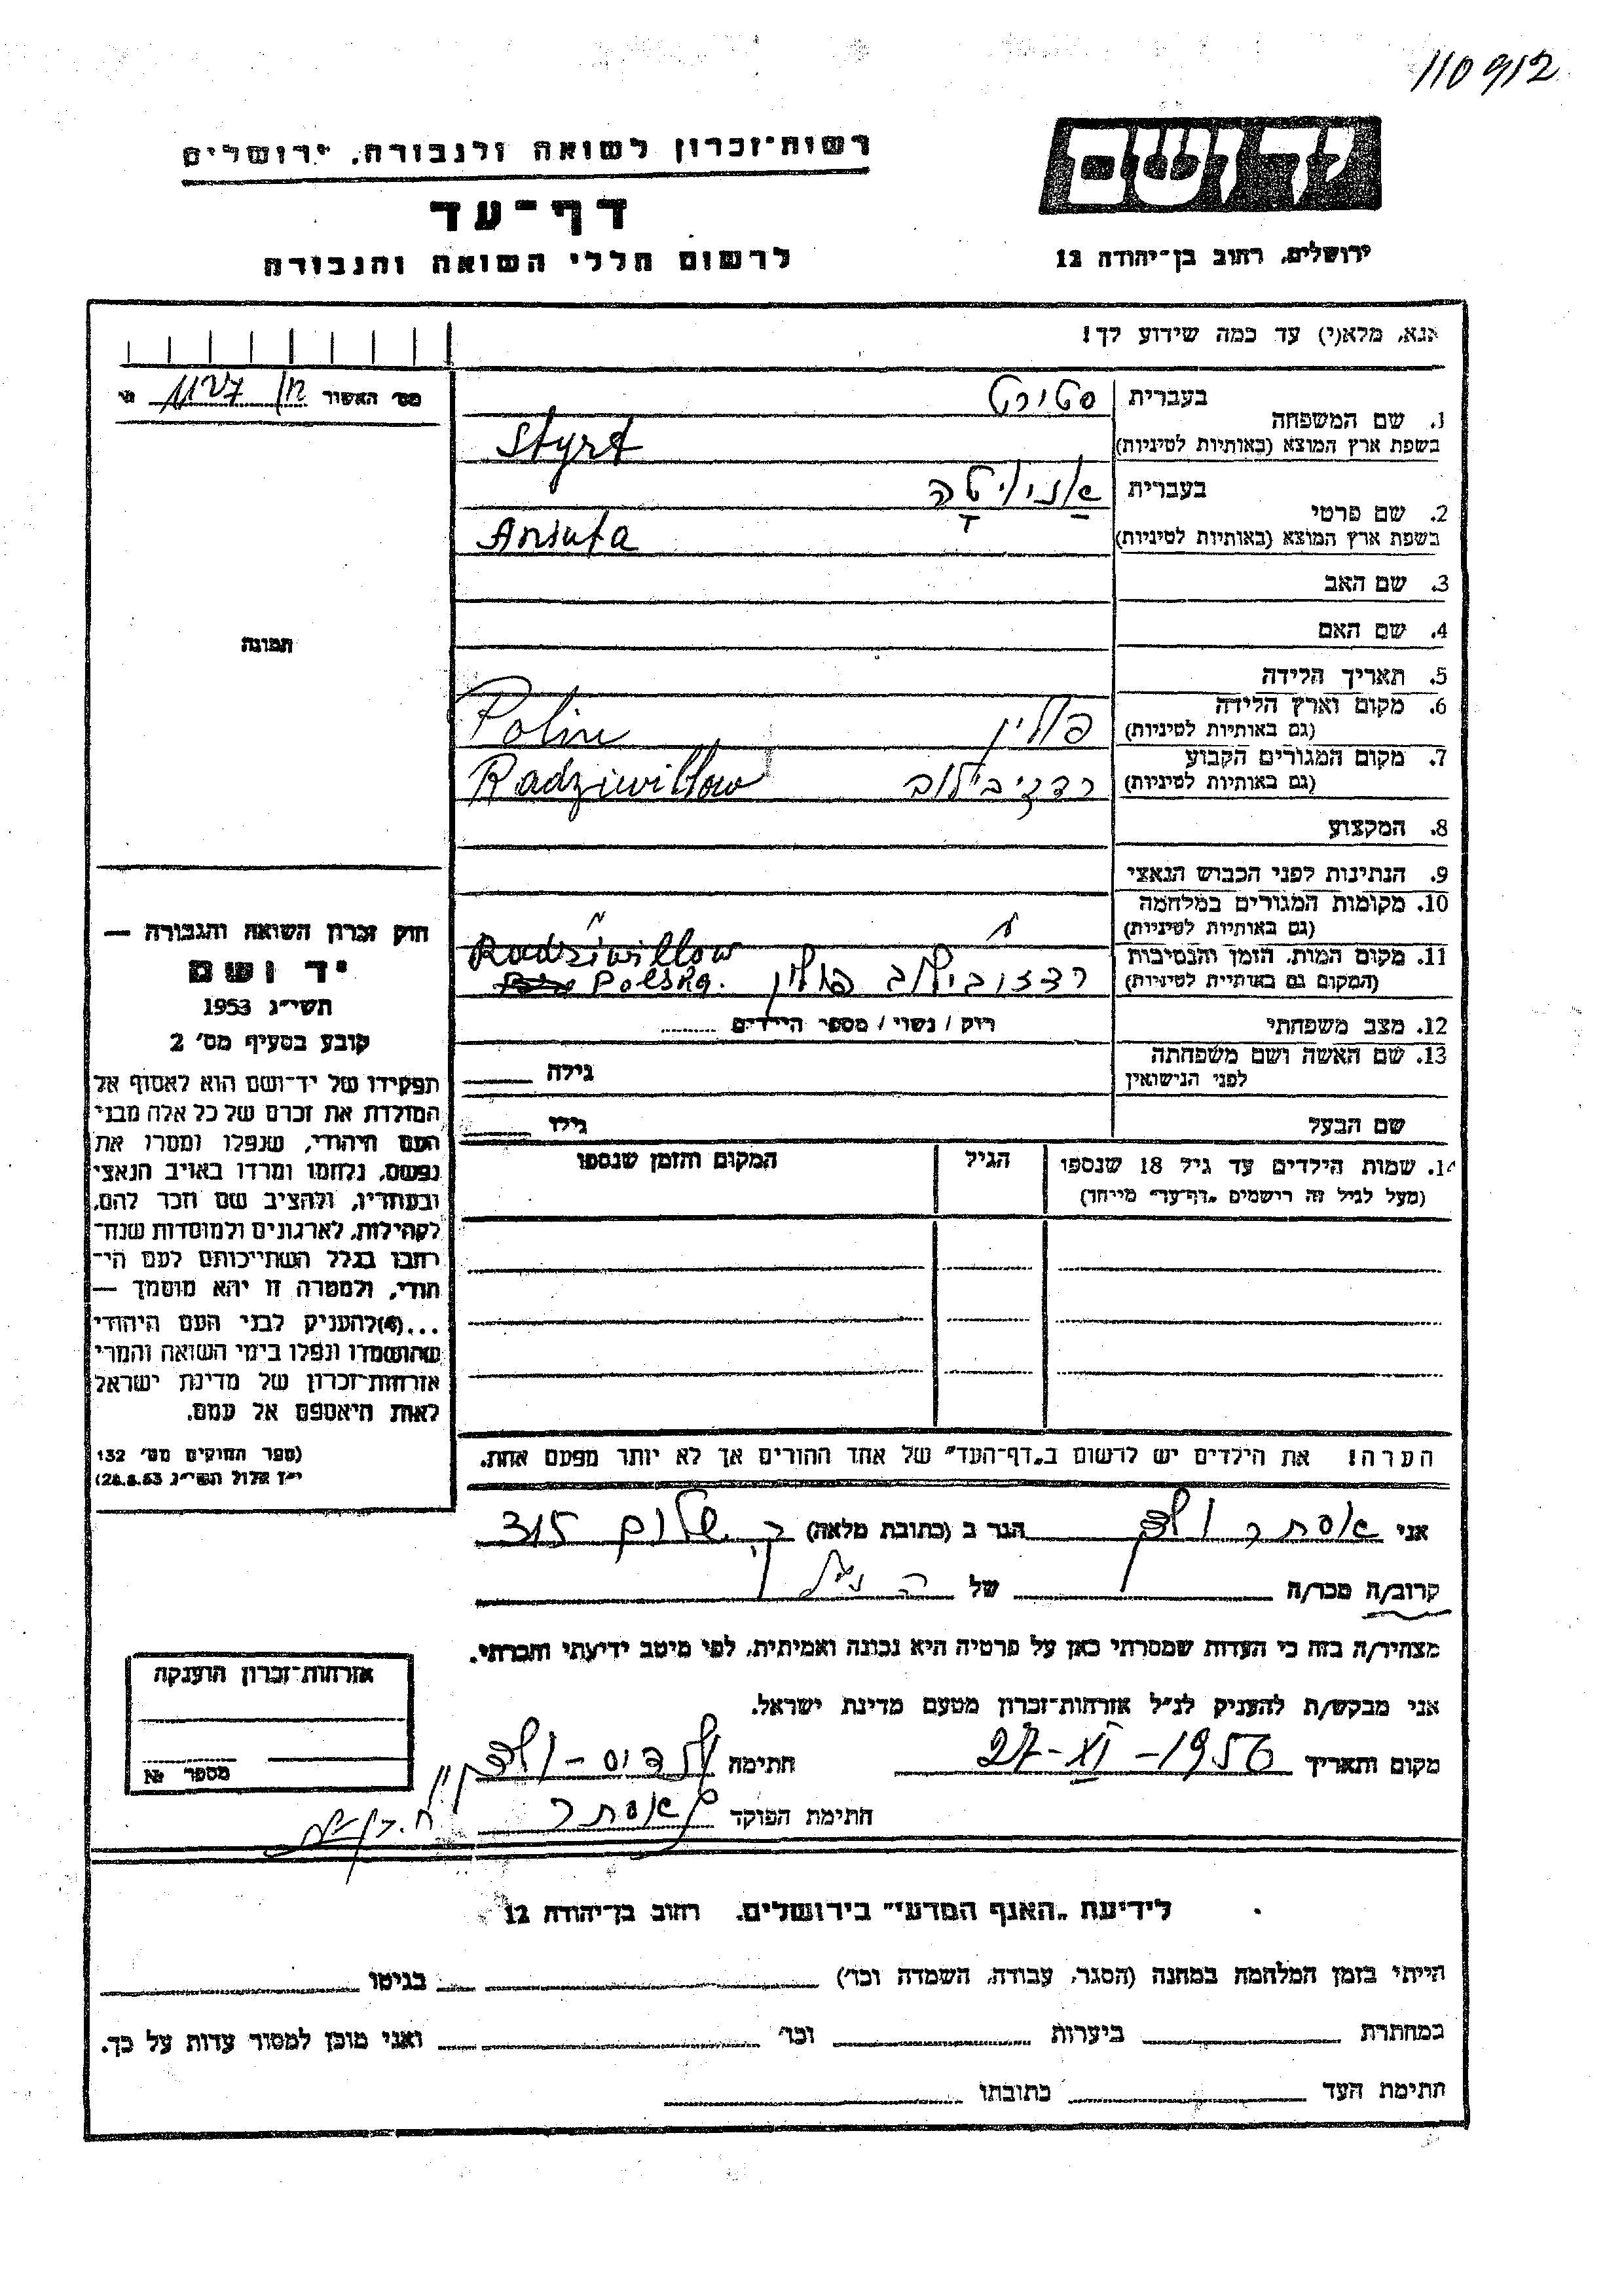 110912
יד ושם
רשות־זכרון לשואה ולגבורה, ירושלים
דף־עד
לרשום חללי השואה והגבורה
ירושלים, רחוב בן־יהודה 12
אנא, מלא(י) עד כמה שידוע לך!
מס׳ האשור 1127
1. שם המשפחה
בעברית סטירט
בשפת ארץ המוצא (באותיות לטיניות) Styrt
2. שם פרטי
בעברית אניוטה
בשפת ארץ המוצא (באותיות לטיניות) Aniuta
3. שם האב
4. שם האם
תמונה
5. תאריך הלידה
6. מקום וארץ הלידה
(גם באותיות לטיניות) פולין Polin
7. מקום המגורים הקבוע
(גם באותיות לטיניות) רדזיבילוב Radziwillow
8. המקצוע
9. הנתינות לפני הכבוש הנאצי
10. מקומות המגורים במלחמה
(גם באותיות לטיניות) " "
11. מקום המות, הזמן והנסיבות
(המקום גם באותיות לטיניות) רדזיבילוב פולין Radziwillow Polska.
12. מצב משפחתי רוק / נשוי / מספר הילדים
13. שם האשה ושם משפחתה
לפני הנישואין גילה
שם הבעל גילו
14. שמות הילדים עד גיל 18 שנספו הגיל המקום והזמן שנספו
(מעל לגיל זה רישמים „דף־עד״ מיוחד)
חוק זכרון השואה והגבורה —
יד ושם
תשי״ג 1953
קובע בסעיף מס׳ 2
תפקידו של יד־ושם הוא לאסוף אל
המולדת את זכרם של כל אלה מבני
העם היהודי, שנפלו ומסרו את
נפשם, נלחמו ומרדו באויב הנאצי
ובעוזריו, ולהציב שם וזכר להם,
לקהילות, לארגונים ולמוסדות שנח־
רחבו בגלל השתייכותם לעם הי־
הודי, ולמטרה זו יהא מוסמך —
...(4) להעניק לבני העם היהודי
שהושמדו ונפלו בימי השואה והמרי
אזרחות־זכרון של מדינת ישראל
לאות היאספם אל עמם.
(ספר החוקים מס׳ 132
י״ז אלול תשי״ג 28.8.53)
הערה! את הילדים יש לרשום ב„דף־העד״ של אחד ההורים אך לא יותר מפעם אחת.
אני אסתר הגר ב (כתובת מלאה) שלום 315
קרוב/ה מכר/ה של
מצהיר/ה בזה כי העדות שמסרתי כאן על פרטיה היא נכונה ואמיתית, לפי מיטב ידיעתי והכרתי.
אני מבקש/ת להעניק לנ״ל אזרחות־זכרון מטעם מדינת ישראל.
מקום ותאריך 27-XI-1956 חתימה
חתימת הפוקד אסתר
אזרחות־זכרון הוענקה
מספר №
לידיעת „האגף המדעי״ בירושלים, רחוב בן־יהודה 12
הייתי בזמן המלחמה במחנה (הסגר, עבודה, השמדה וכד׳) בגיטו
במחתרת ביערות וכו׳ ואני מוכן למסור עדות על כך.
חתימת העד כתובתו